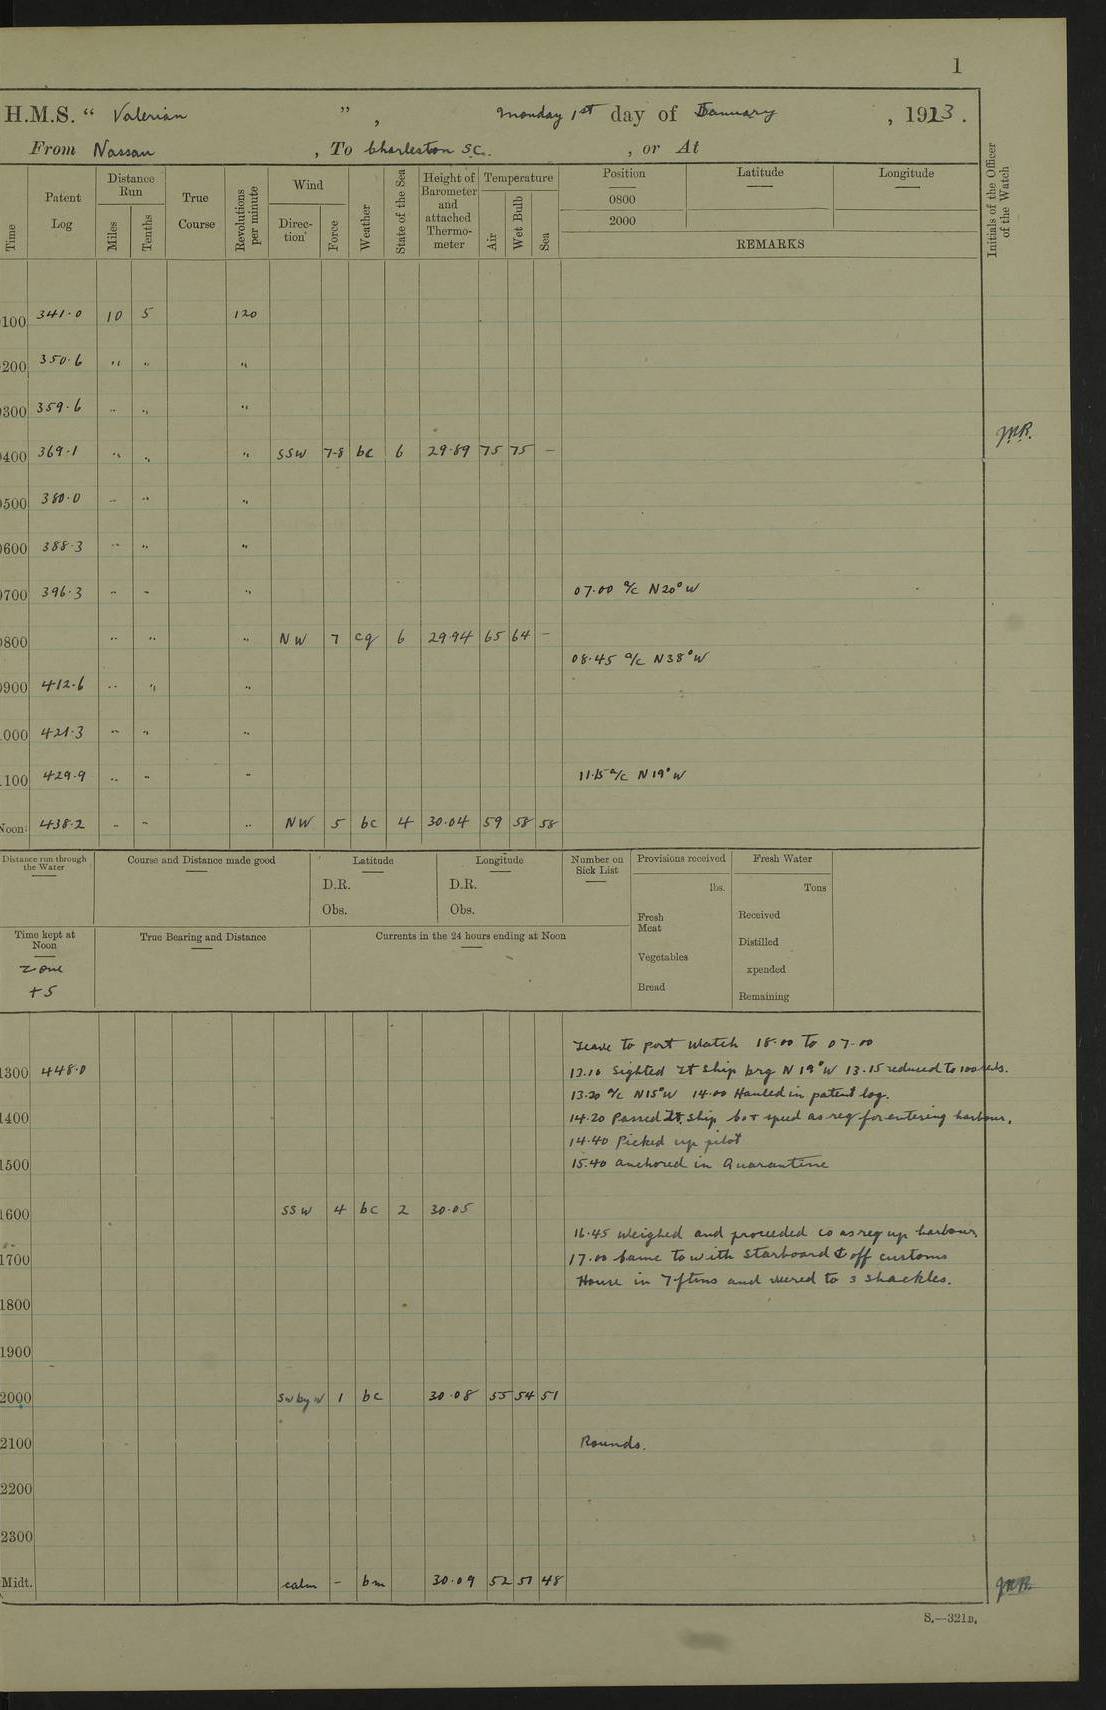 1
H.M.S. “ Valerian ” , Monday 1st day of January , 1923 .
From Nassau , To Charleston S.C. , or At
Time
Patent Log
Distance Run
Miles
Tenths
True Course
Revolutions per minute
Wind
Direction
Force
Weather
State of the Sea
Height of Barometer and attached Thermometer
Temperature
Air
Wet Bulb
Sea
Position
Latitude
Longitude
0800
2000
REMARKS
Initials of the Officer of the Watch
100 341.0 10 5 120
200 350.6 " " "
300 359.6 " " "
J.M.R.
400 369.1 " " " SSW 7-8 bc 6 29.89 75 75 –
500 380.0 " " "
600 388.3 " " "
0700 396.3 " " " 07.00 a/c N20°W
0800 " " " NW 7 cq 6 29.94 65 64 –
08.45 a/c N38°W
0900 412.6 " " "
000 421.3 " " "
100 429.9 " " " 11.15 a/c N19°W
Noon 438.2 " " " NW 5 bc 4 30.04 59 58 58
Distance run through the Water
Course and Distance made good
Latitude
D.R.
Obs.
Longitude
D.R.
Obs.
Number on Sick List
Provisions received
lbs.
Fresh Meat
Vegetables
Bread
Fresh Water
Tons
Received
Distilled
xpended
Remaining
Time kept at Noon
Zone
+5
True Bearing and Distance
Currents in the 24 hours ending at Noon
Leave to port watch 18.00 to 07.00
1300 448.0 13.10 Sighted Lt Ship brg N 19°W 13.15 reduced to 100 revs.
13.20 a/c N15°W 14.00 Hauled in patent log.
1400 14.20 Passed Lt. Ship Co + speed as req for entering harbour.
14.40 Picked up pilot
1500 15.40 anchored in Quarantine
1600 SSW 4 bc 2 30.05
16.45 weighed and proceeded co as req up harbour
1700 17.00 Came to with starboard ⚓ off customs
House in 7 ftms and veered to 3 shackles.
1800
1900
2000 SW by W 1 bc 30.08 55 54 51
2100 Rounds.
2200
2300
Midt. calm – bm 30.09 52 51 48
J.M.R.
S.—321B.